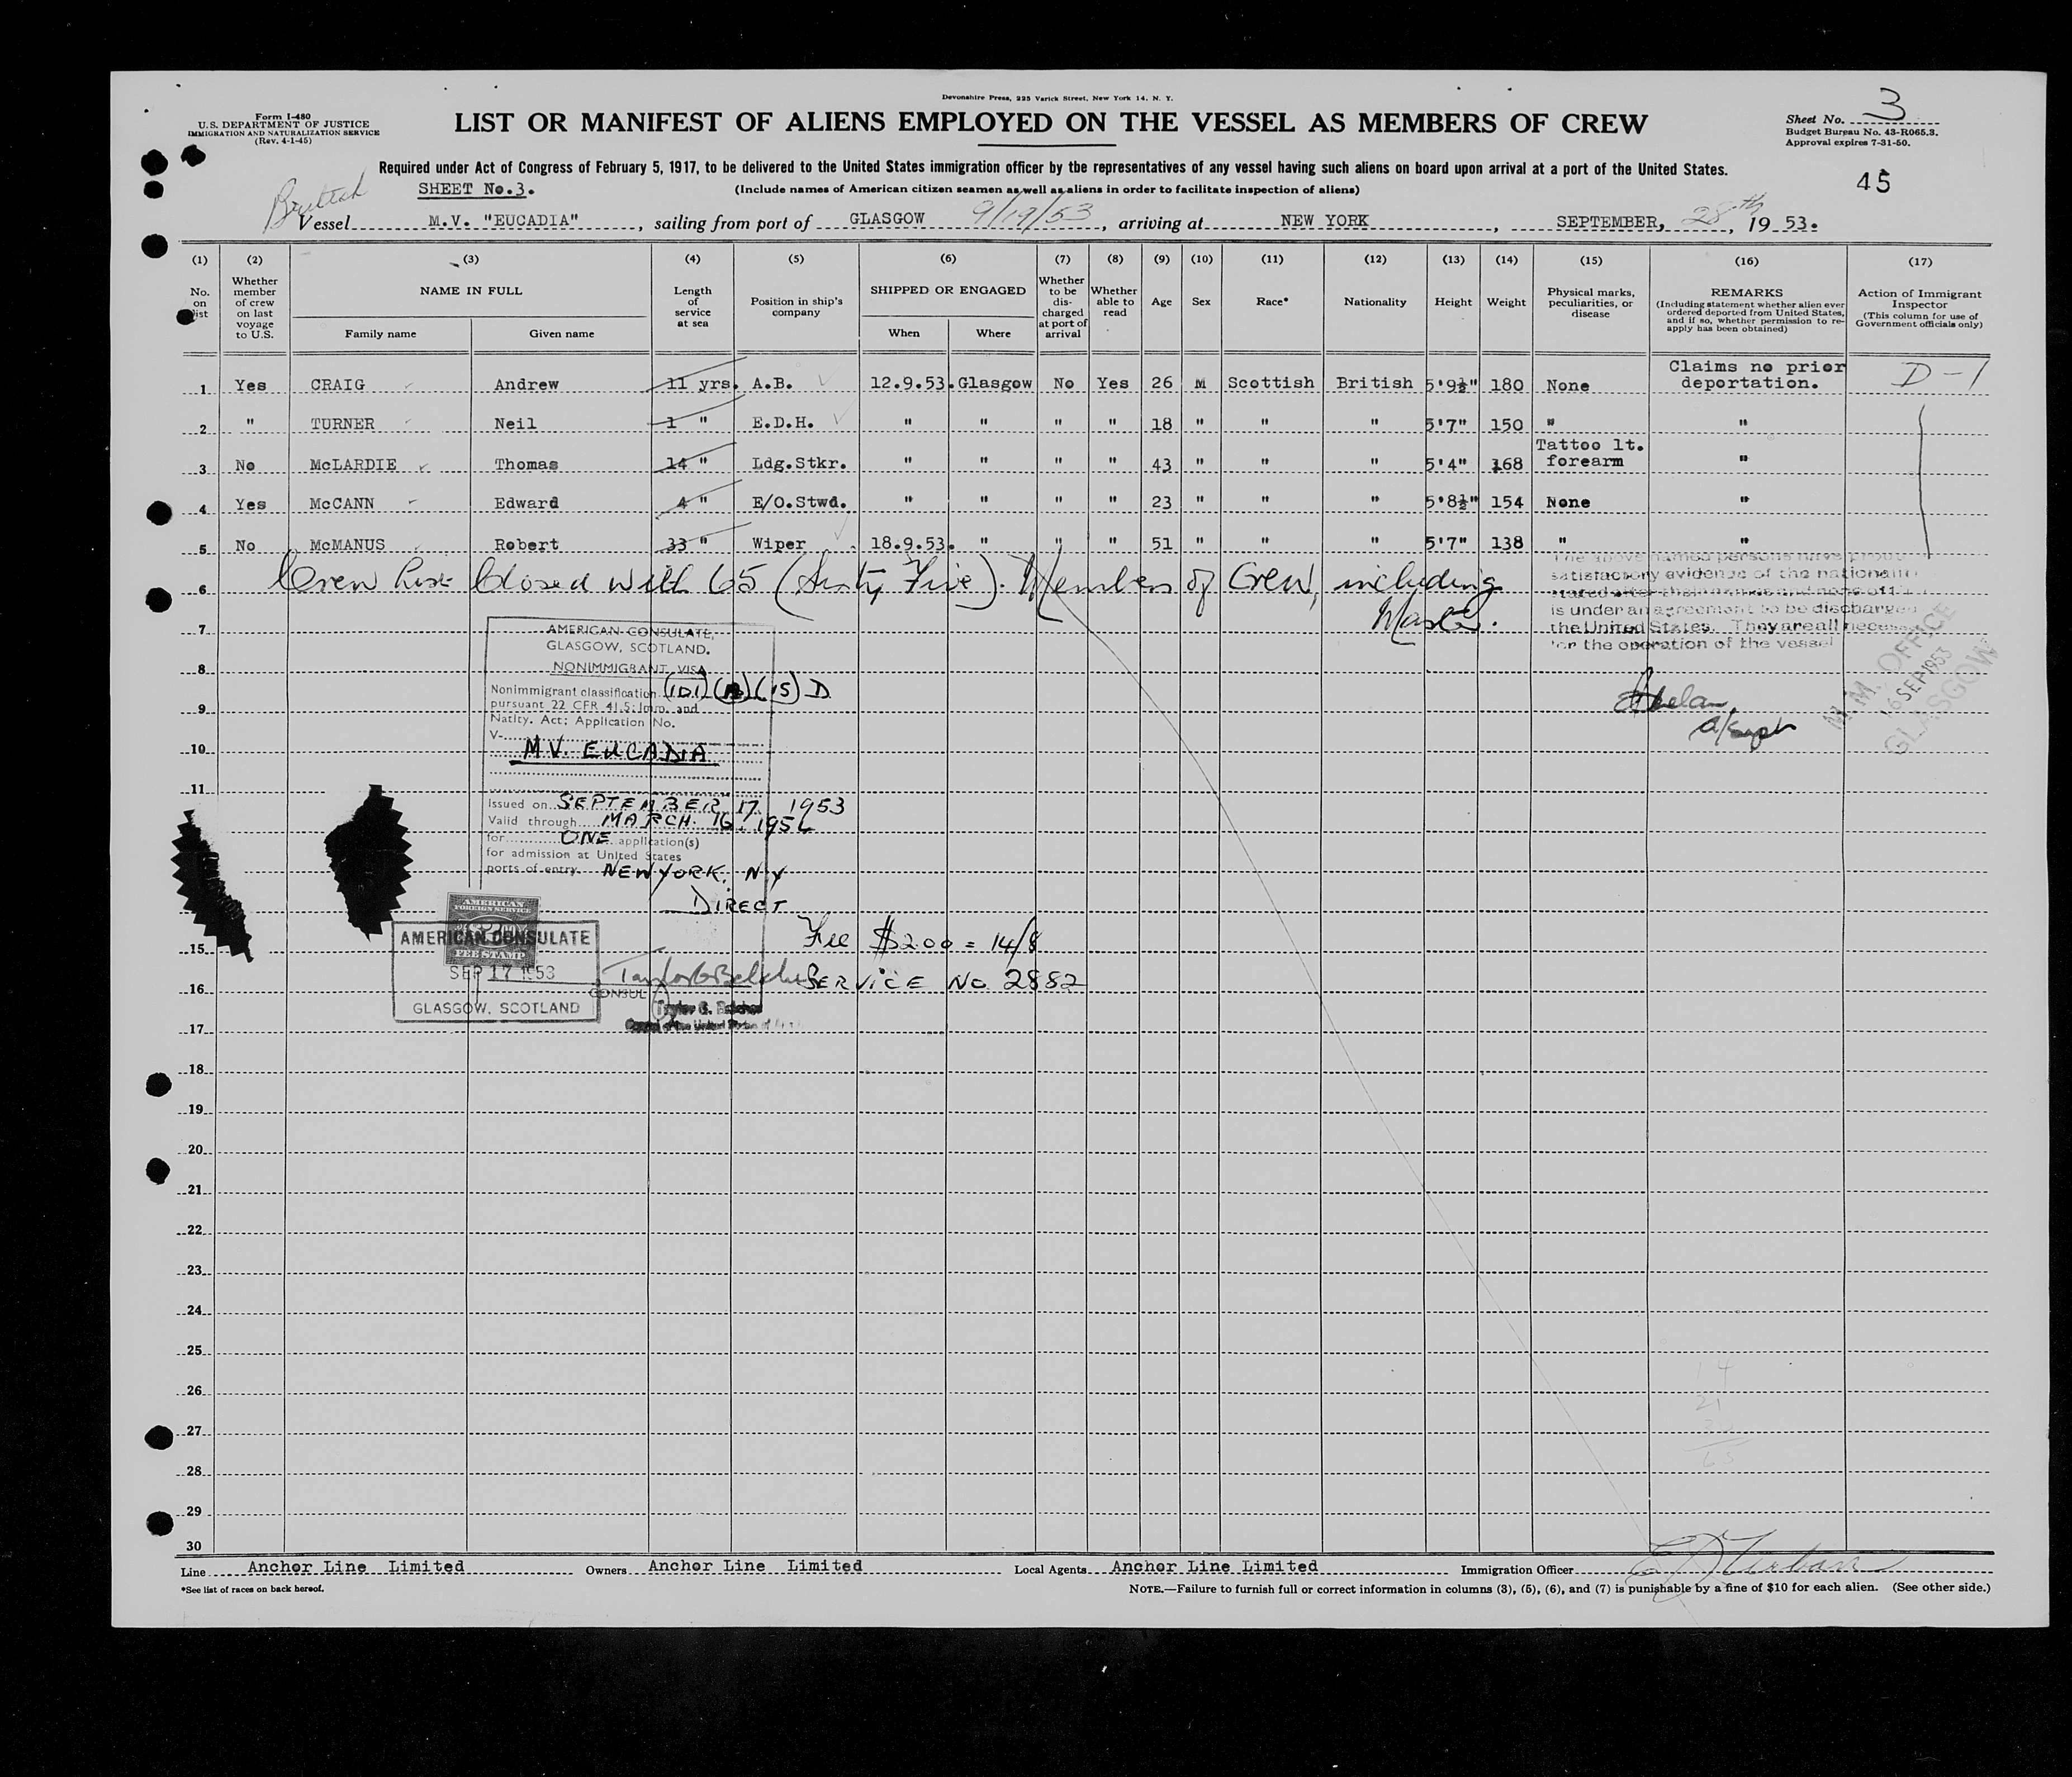 Devonshire Press, 225 Varick Street, New York 14, N. Y.
Form I-480
U.S. DEPARTMENT OF JUSTICE
IMMIGRATION AND NATURALIZATION SERVICE
(Rev. 4-1-45)
LIST OR MANIFEST OF ALIENS EMPLOYED ON THE VESSEL AS MEMBERS OF CREW
Sheet No. 3
Budget Bureau No. 43-R065.3.
Approval expires 7-31-50.
Required under Act of Congress of February 5, 1917, to be delivered to the United States immigration officer by the representatives of any vessel having such aliens on board upon arrival at a port of the United States.
45
British
SHEET No.3.
(Include names of American citizen seamen as well as aliens in order to facilitate inspection of aliens)
Vessel M.V. "EUCADIA", sailing from port of GLASGOW 9/19/53, arriving at NEW YORK, SEPTEMBER, 28th, 19 53.
(1) (2) (3) (4) (5) (6) (7) (8) (9) (10) (11) (12) (13) (14) (15) (16) (17)
No. on list
Whether member of crew on last voyage to U.S.
NAME IN FULL
Family name
Given name
Length of service at sea
Position in ship's company
SHIPPED OR ENGAGED
When
Where
Whether to be discharged at port of arrival
Whether able to read
Age
Sex
Race*
Nationality
Height
Weight
Physical marks, peculiarities, or disease
REMARKS
(Including statement whether alien ever ordered deported from United States, and if so, whether permission to reapply has been obtained)
Action of Immigrant Inspector
(This column for use of Government officials only)
1 Yes CRAIG Andrew 11 yrs. A.B. 12.9.53. Glasgow No Yes 26 M Scottish British 5'9½" 180 None Claims no prior deportation. D-1
2 " TURNER Neil 1 " E.D.H. " " " " 18 " " " 5'7" 150 " "
3 No McLARDIE Thomas 14 " Ldg.Stkr. " " " " 43 " " " 5'4" 168 Tattoo lt. forearm "
4 Yes McCANN Edward 4 " E/O.Stwd. " " " " 23 " " " 5'8½" 154 None "
5 No McMANUS Robert 33 " Wiper 18.9.53. " " " 51 " " " 5'7" 138 " "
6 Crew List Closed with 65 (Sixty Five). Members of Crew, including
Master.
The above named persons have produ
satisfactory evidence of the nationalit
stated after their names and none of t
is under an agreement to be discharged
the United States. They are all necess
for the operation of the vessel
M.M. OFFICE
16 SEP 1953
GLASGOW
7
8
9
10
11
AMERICAN CONSULATE,
GLASGOW, SCOTLAND.
NONIMMIGRANT VISA
Nonimmigrant classification (101) (A) (15) D
pursuant 22 CFR 41.5; Imm. and
Natlty. Act; Application No.
V-
M.V. EUCADIA
Issued on SEPTEMBER 17, 1953
Valid through MARCH 16, 195
for ONE application(s)
for admission at United States
ports of entry NEW YORK, N.Y
DIRECT
AMERICAN
FOREIGN SERVICE
FEE STAMP
AMERICAN CONSULATE
SEP 17 1953
GLASGOW, SCOTLAND
Fee $2.00 = 14/8
SERVICE No 2882
Taylor G. Belcher
CONSUL
Taylor G. Belcher
Consul of the United States of
15
16
17
18
19
20
21
22
23
24
25
26
27
28
29
30
14
21
65
Line Anchor Line Limited Owners Anchor Line Limited Local Agents Anchor Line Limited Immigration Officer
*See list of races on back hereof.
NOTE.—Failure to furnish full or correct information in columns (3), (5), (6), and (7) is punishable by a fine of $10 for each alien. (See other side.)